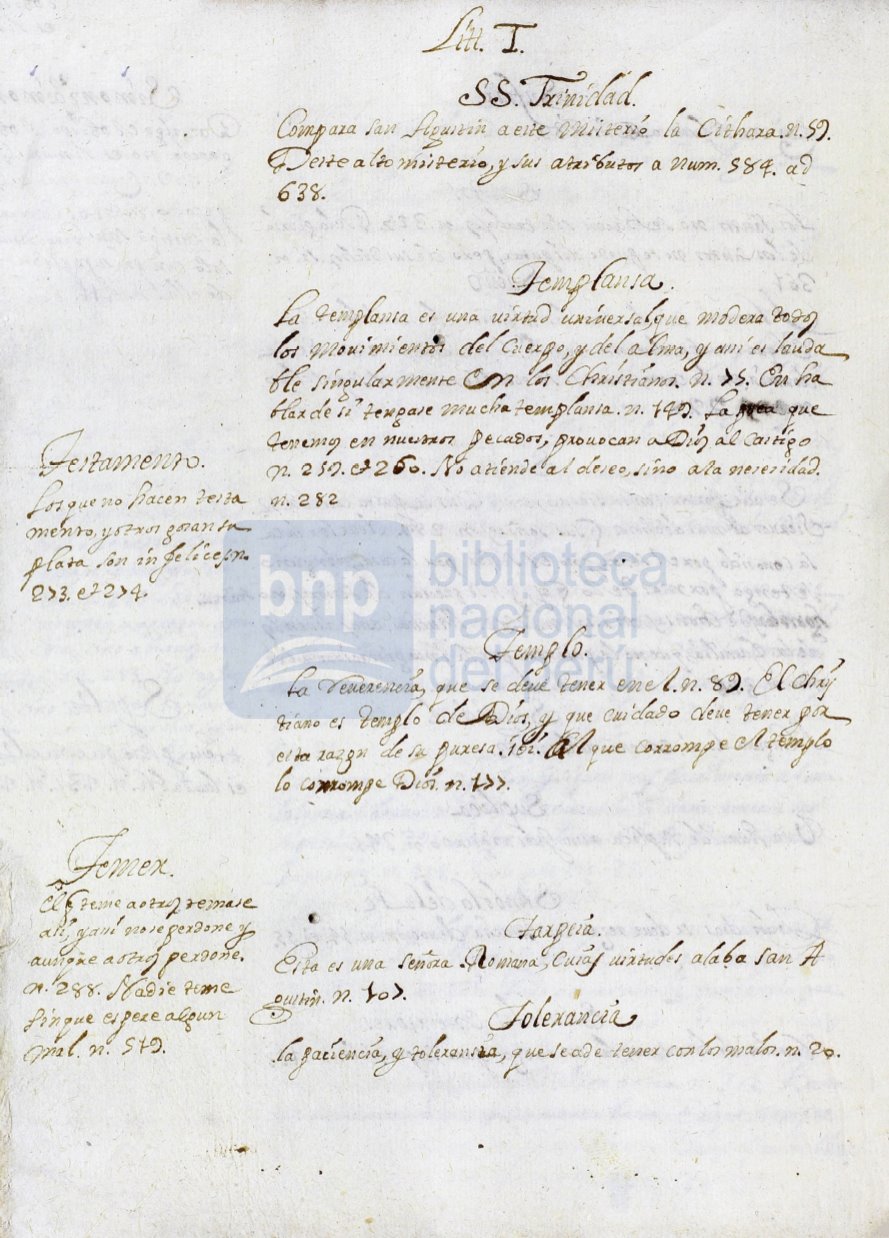 Litt. T.
SS. Trinidad.
Compara san Agustin a este Misterio la Cithara. n. 59.
Deste alto misterio, y sus atributos a num. 584. ad
638.
Templansa.
La templansa es una virtud universal, que modera todos
los movimientos del Cuerpo, y del alma, y ansi es lauda
ble singularmente en los Christianos. n. 75. En ha
blar de si tengase mucha templansa. n. 149. La que
tenemos en nuestros pecados, provocan a Dios al Castigo
n. 259. et 260. No atiende al deseo, sino a la neseridad.
n. 282
Testamento.
Los que no hacen testa
mento, y otros gosan su
plata son infelices, n.
273. et 274.
bnp biblioteca
nacional
del perú
Templo.
La Reverencia, que se deve tener en el. n. 89. El chris
tiano es templo de Dios, y que cuidado deve tener por
esta razon de su puresa. El que corrompe el templo
lo corrompe Dios. n. 177.
Temer.
El q teme a otros temase
asi, y ansi no se perdone y
aunque a otros perdone.
n. 288. Nadie teme
sin que espere algun
mal. n. 519.
Tarpeia.
Esta es una señora Romana, cuias virtudes alaba san A
gustin. n. 107.
Tolerancia
la paciencia, y toleransia, que se a de tener con los malos. n. 20.